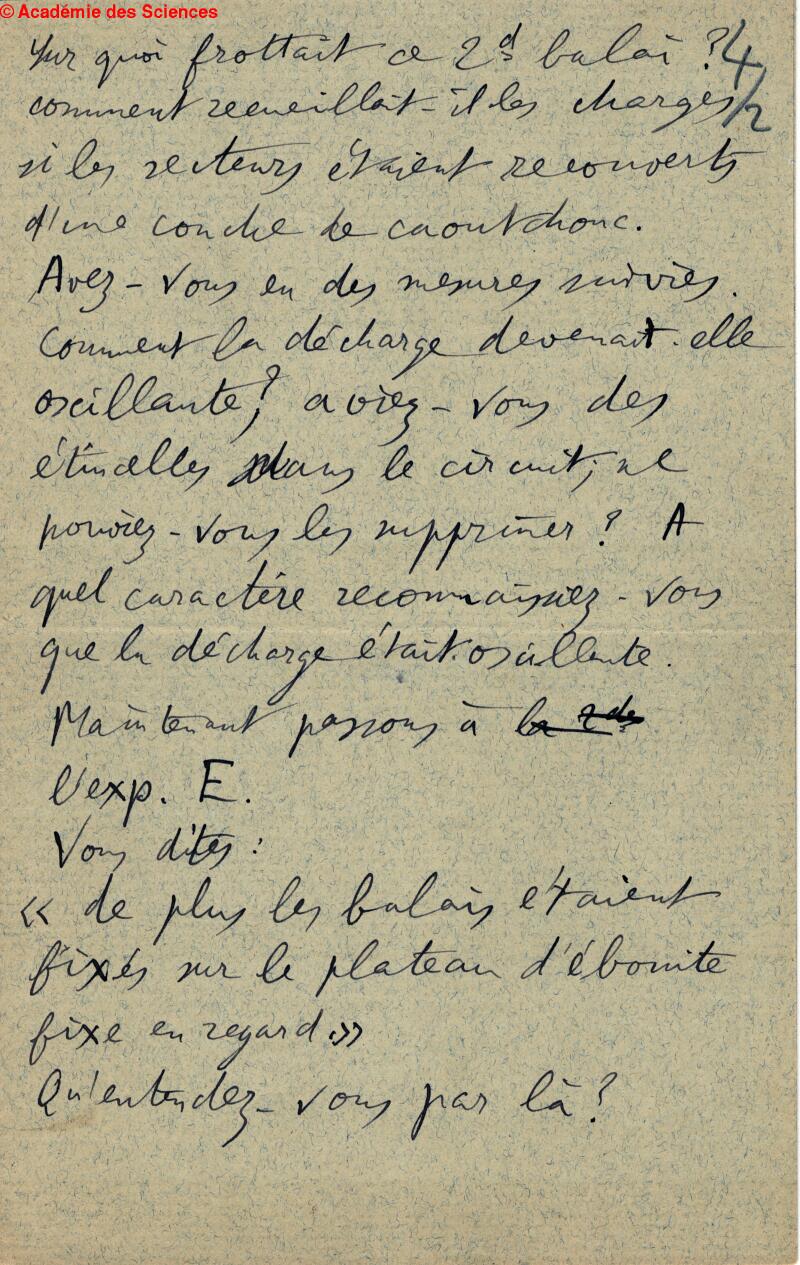 © Académie des Sciences
4/2
Sur quoi frottait ce 2d balai ?
comment recueillait-il les charges
si les secteurs étaient recouverts
d'une couche de caoutchouc.
Avez-vous eu des mesures suivies.
Comment la décharge devenait-elle
oscillante ? aviez-vous des
étincelles dans le circuit, ne
pouviez-vous les supprimer ? A
quel caractère reconnaissiez-vous
que la décharge était oscillante.
Maintenant passons à la 2de
l'exp. E.
Vous dites :
« de plus les balais étaient
fixés sur le plateau d'ébonite
fixe en regard »
Qu'entendez-vous par là ?